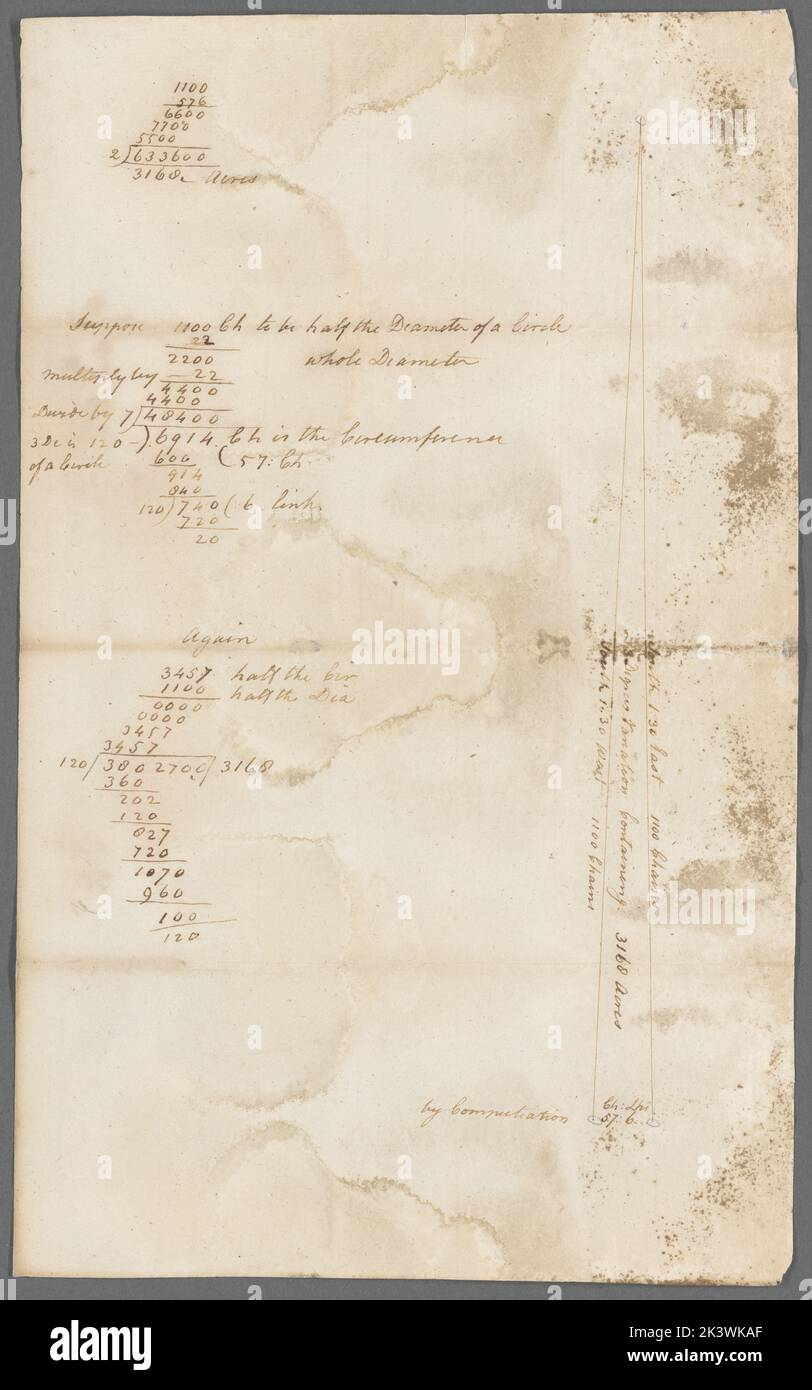 1100
576
6600
7700
5500
2)633600
3168 Acres
Suppose 1100 Ch to be half the Diameter of a Circle
22
2200 whole Diameter
multiply by 22
4400
4400
Divide by 7)48400
3 De is 120 - ) 6914. Ch is the Circumference
of a Circle 600 (57: Ch
914
840
120)740(6 link
720
20
Again
3457 half the Cir
1100 half the Dia
0000
0000
3457
3457
120)3802700(3168
360
202
120
827
720
1070
960
100
120
South 1:30 East 1100 Chains
Degrees Variation Containing 3168 Acres
South 1:30 West 1100 Chains
by Computation
Ch: Lps
57: 6
alamy
Image ID: 2K3WKAF
www.alamy.com